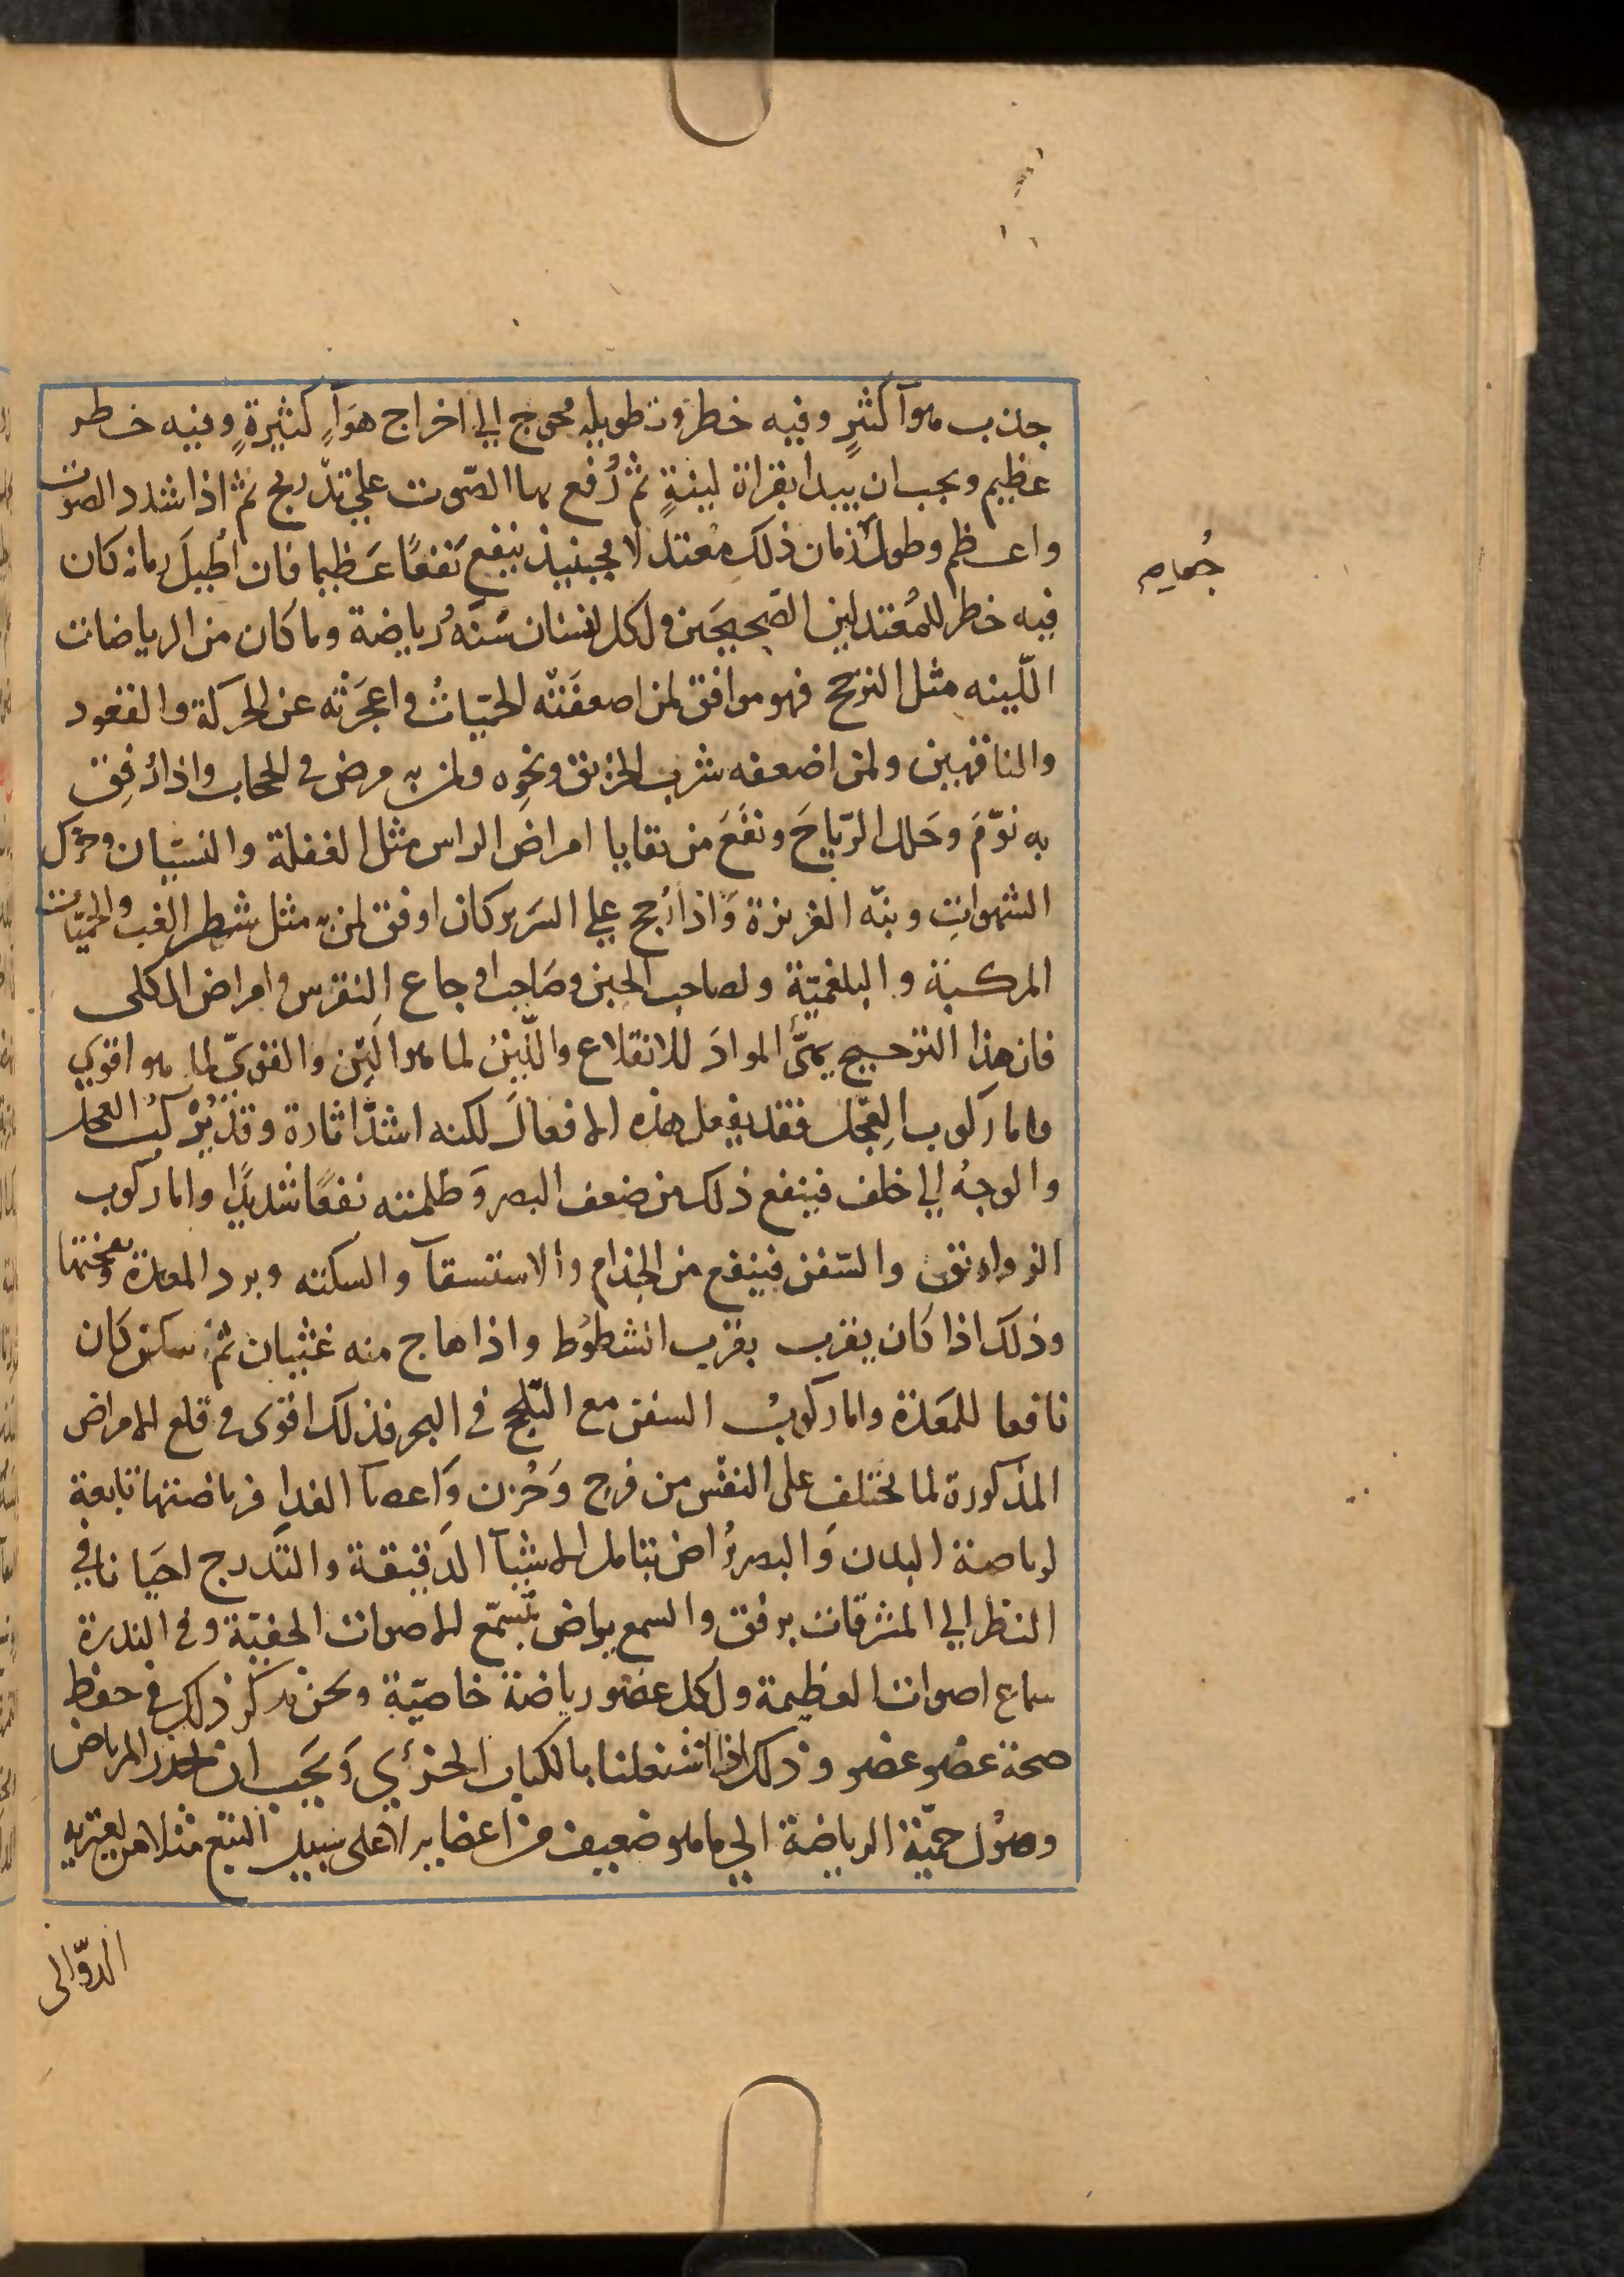 جذب هوآ كثيرٍ وفيه خطر وتطويله محوج الي اخراج هوَآءٍ كثيرةٍ وفيه خطر
عظيم ويجب ان يبدا بقراة لينةٍ ثم رُفع بها الصّوت علي تدّريج ثم اذا شدد الصوت
واعظم وطول زمان ذلك معتدلا فحينيذ ينفع نَفعًا عَظيما فان اُطيلَ زمانه كان
فيه خطر للمُعتدلين الصّحيحَين ولكل انسان سَنَهُ رياضة وما كان من الرياضات
اللّينه مثل الترجح فهو موافق لمن اضعفَتْه الحمّياتُ واعجَزته عن الحركة والقعود
والناقهين ولمن اضعفه شرب الخربق ونحوِه ولمن به مرض في الحجاب واذا رُفِق
به نوّمَ وحَلل الرّياحَ ونفَعَ من بقايا امراض الراس مثل الغفلة والنسّيان وحرّك
الشهواتِ ونبّه الغريزة وَاذا رُجح علي السَرير كان اوفق لمن به مثل شطر الغب والحمّيات
المركبة و البلغميّة ولصاحب الحبن وصَاحب اوجاع النقرس وامراض الكلى
فان هذا الترجيح يهيّئ الموادَ للانقلاع واللّيّنُ لما هو اليَن والقويّ لما هو اقوي
واما ركوب العِجَل فقد يفعل هذه الافعالَ لكنه اشدّ اثارة وقد يُرْكبُ العجل
والوجهُ الي خلف فينفع ذلك من ضعف البصر وَظلمته نفعًا شديدًا واما ركوب
الزواريق والسّفن فينفع من الجذام والاستسقآ والسكته وبرد المعدة ونفختها
وذلك اذا كان يقرب بقرب الشطوُط واذا هاج منه غثيان ثمّ سكن كان
نافعا للمَعدة واما ركوبُ السفن مع التّلجج في البحر فذلك اقوى في قلع الامراض
المذكورة لما يختلف على النفْس من فرح وَحُزن وَاعضآ الغدا فرياضتها تابعة
لرياضة البدن وَالبصر يُراض بتامل الاشيآ الدَقيقة والتَدرج احيَانا في
النظر الي المشرقات برفق والسمع يراض بتسمّع الاصوات الخفيّة وفي الندرة
سماع اصوات العظيمة ولكل عضو رياضة خاصيّة ونحن نذكر ذلك في حفظ
صحة عضو عضو وذلك اذا اشتغلنا بالكتاب الجزئي وَيَجب ان يحذر المرتاض
وصوُل حميّة الرياضة الي ما هو ضعيف من اعضايه الا على سبيل التبع مثلا من يعتريه
الدوّالى